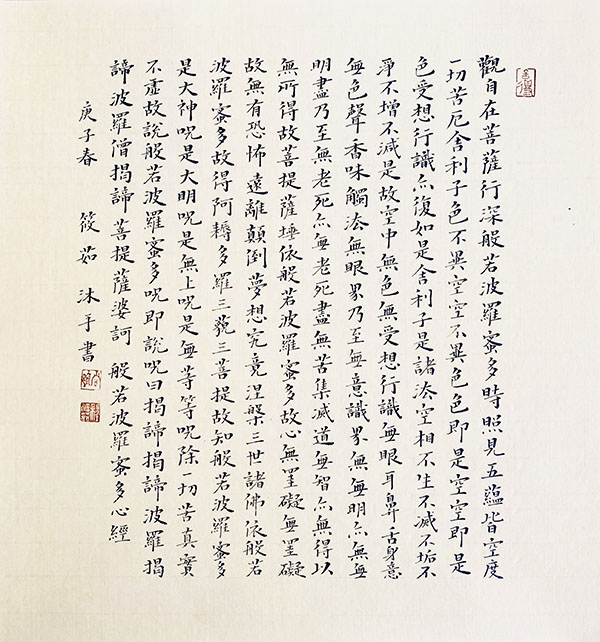 觀自在菩薩行深般若波羅蜜多時照見五蘊皆空度
一切苦厄舍利子色不異空空不異色色即是空空即是
色受想行識亦復如是舍利子是諸法空相不生不滅不垢不
淨不增不減是故空中無色無受想行識無眼耳鼻舌身意
無色聲香味觸法無眼界乃至無意識界無無明亦無無
明盡乃至無老死亦無老死盡無苦集滅道無智亦無得以
無所得故菩提薩埵依般若波羅蜜多故心無罣礙無罣礙
故無有恐怖遠離顛倒夢想究竟涅槃三世諸佛依般若
波羅蜜多故得阿耨多羅三藐三菩提故知般若波羅蜜多
是大神呪是大明呪是無上呪是無等等呪除一切苦真實
不虛故說般若波羅蜜多呪即說呪曰揭諦揭諦波羅揭
諦波羅僧揭諦 菩提薩婆訶 般若波羅蜜多心經
庚子春 筱茹 沐手書